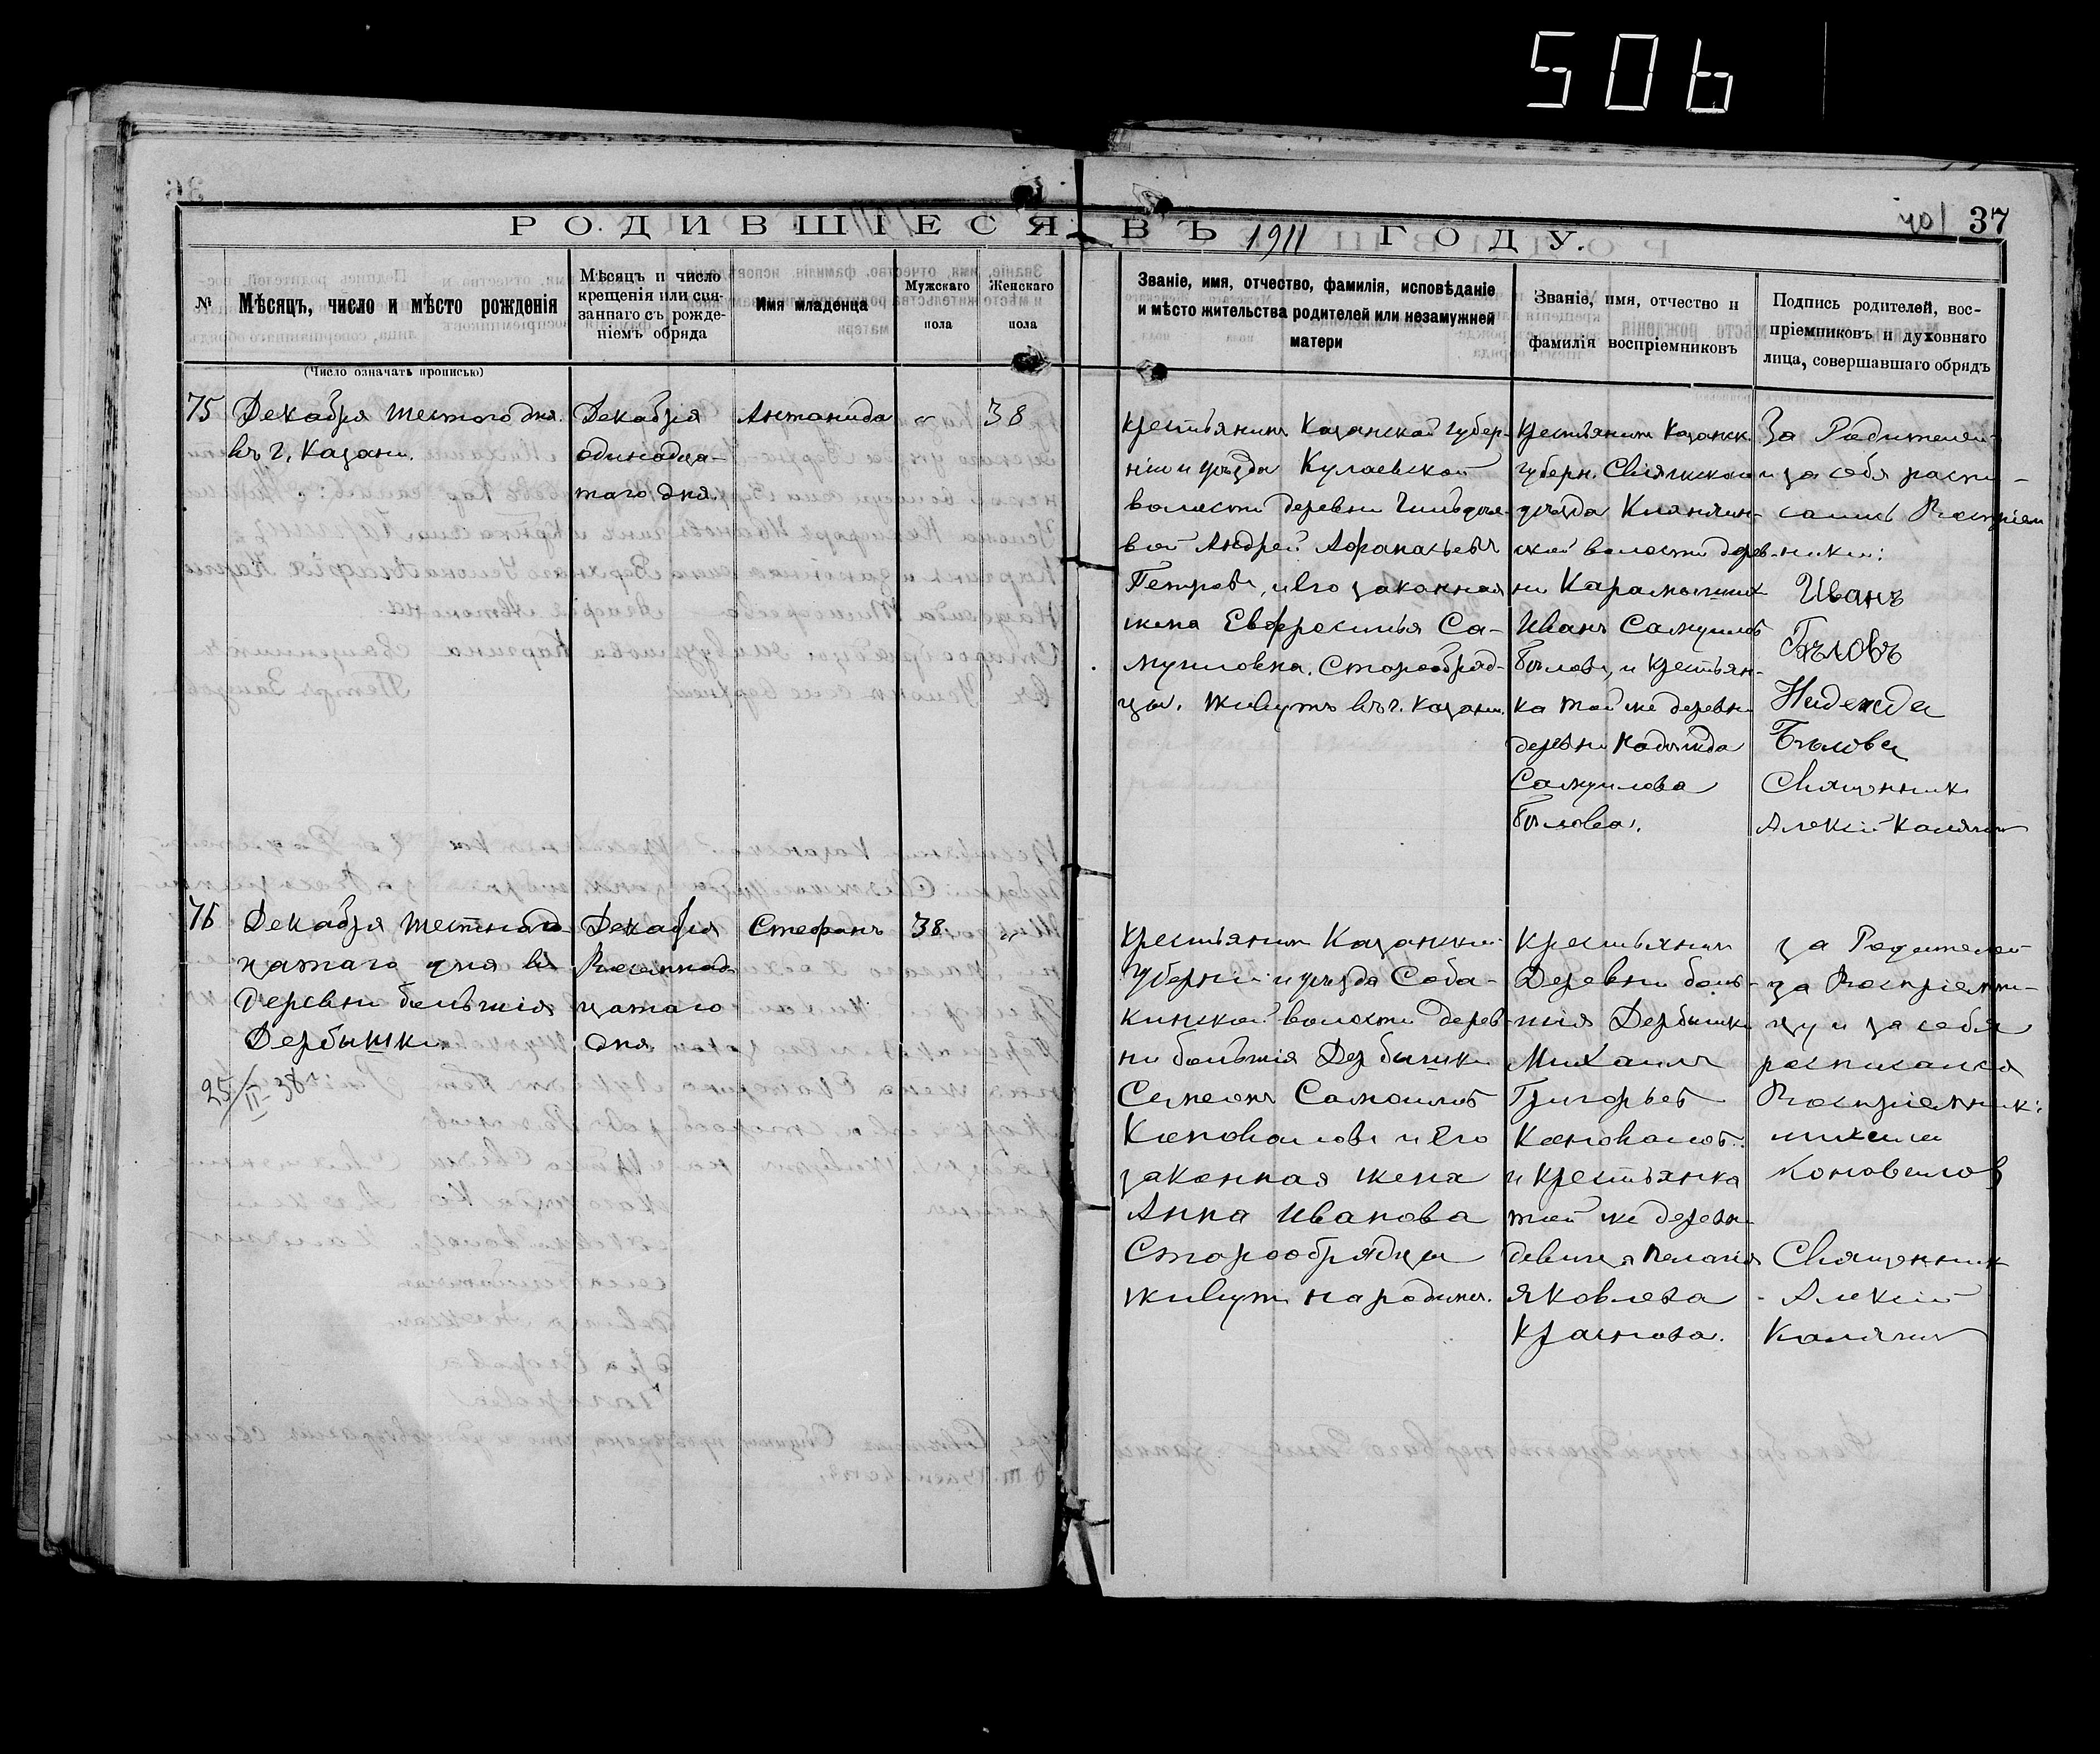 506
37
РОДИВШІЕСЯ ВЪ 1911 ГОДУ.
№
Мѣсяцъ, число и мѣсто рожденія
Мѣсяцъ и число
крещенія или свя-
заннаго съ рожде-
ніемъ обряда
Имя младенца
Мужскаго
пола
Женскаго
пола
Званіе, имя, отчество, фамилія, исповѣданіе
и мѣсто жительства родителей или незамужней
матери
Званіе, имя, отчество и
фамилія воспріемниковъ
Подпись родителей, вос-
пріемниковъ и духовнаго
лица, совершавшаго обрядъ
(Число означать прописью)
75
Декабря шестого дня.
въ г. Казани.
Декабря
одинадца-
таго дня.
Антанида
"
38
Крестьянинъ Казанской губер-
ніи и уѣзда Кулаевской
волости деревни
вой Андрей Афанасьевъ
Петровъ, и его законная
жена Евфросинья Са-
муиловна. Старообряд-
цы. Живутъ въ г. Казани.
Крестьянинъ Казанск.
губерн. Свіяжскаго
уѣзда
ской волости дерев-
ни
Иванъ Самуиловъ
Бѣловъ, и крестьян-
ка той же деревни
деревни Надежда
Самуилова
Бѣлова.
За Родителей
и за себя распи-
сались Воспріем
ники:
Иванъ
Бѣловъ
Надежда
Бѣлова
Священникъ
Алексій Калягинъ
76
Декабря шестнад
цатаго дня въ
деревни большія
Дербышки
25/II-38 г
Декабря
Восемнад
цатаго
дня
Стефанъ
38
"
Крестьянинъ Казанской
Губерніи и уѣзда Соба-
кинской волости дерев-
ни большія Дербышки
Симеонъ Самоиловъ
Коноваловъ и его
законная жена
Анна Иванова
Старообрядцы
живутъ на родинѣ.
Крестьянинъ
Деревни боль-
шія Дербышки
Михаилъ
Григорьевъ
Коноваловъ
и крестьянка
той же деревни
девица Пелагія
Яковлева
Краснова.
за Родителей
за Воспріемни-
цу и за себя
росписался
Воспріемникъ:
михаил
Коновалов
Священникъ
Алексій
Калягинъ